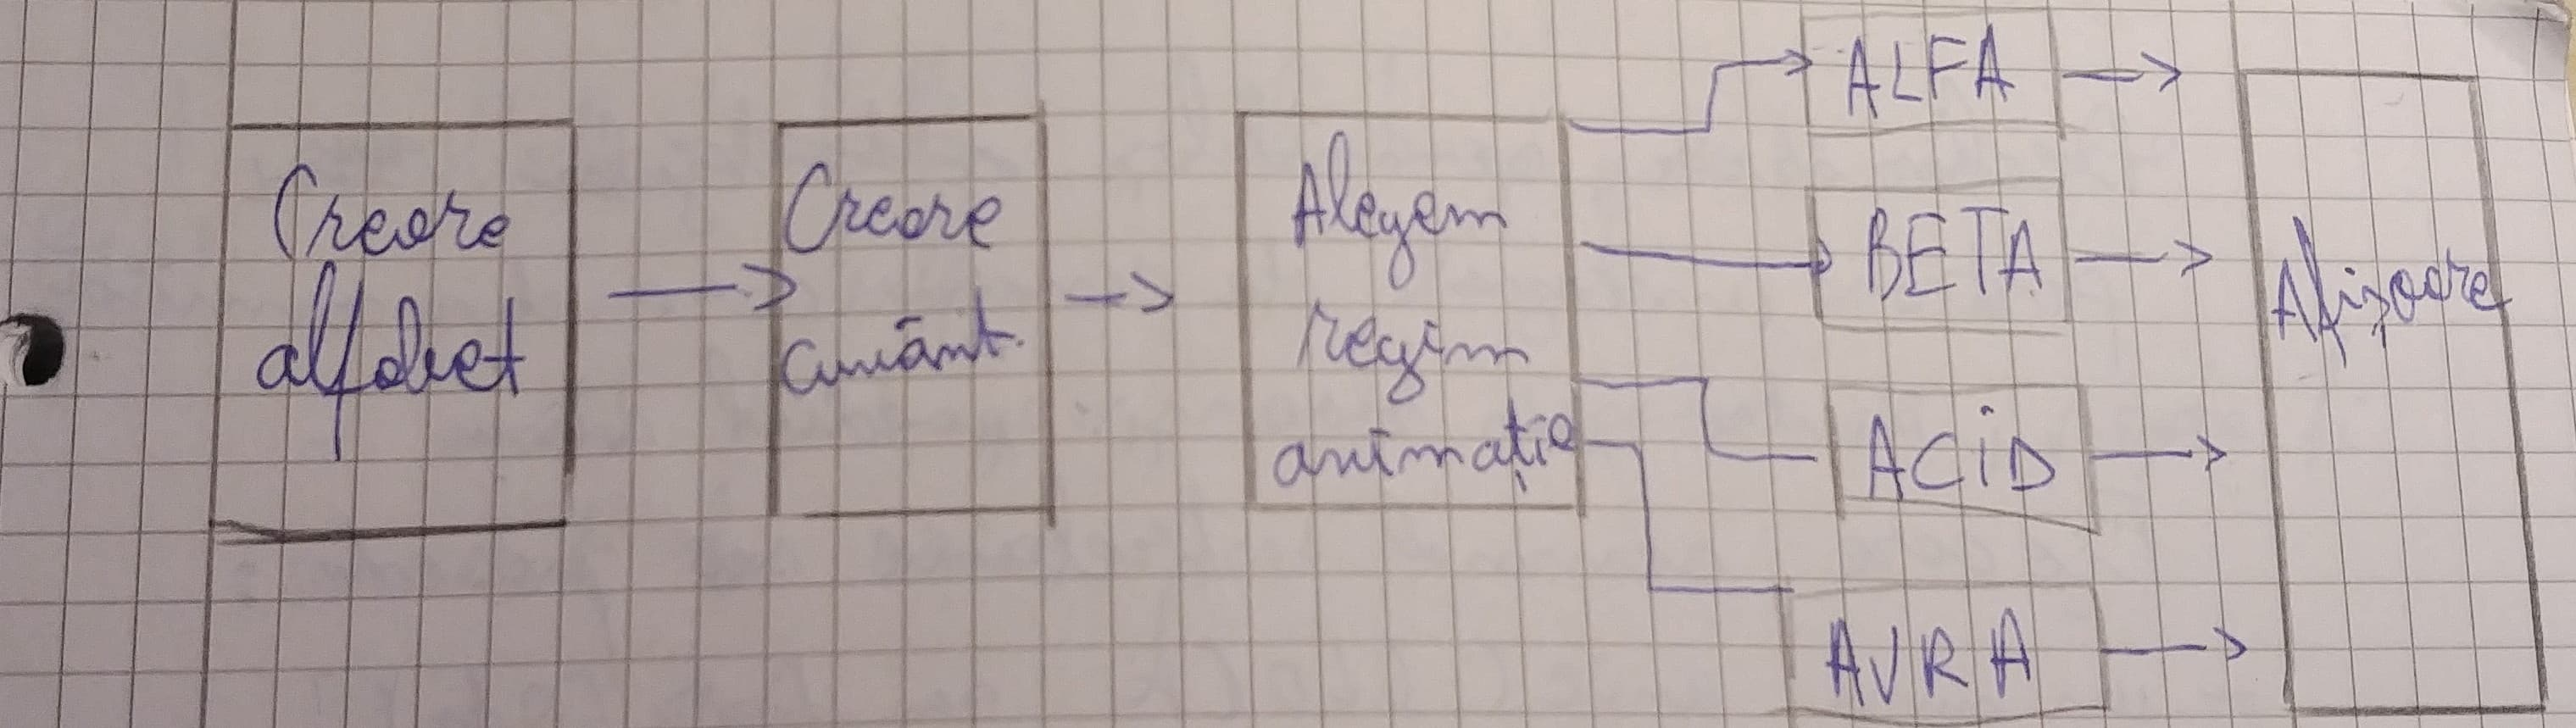 Creare
alfabet
Creare
cuvânt.
Alegem
regim
animație
ALFA
BETA
ACiD
AVRA
Afișare